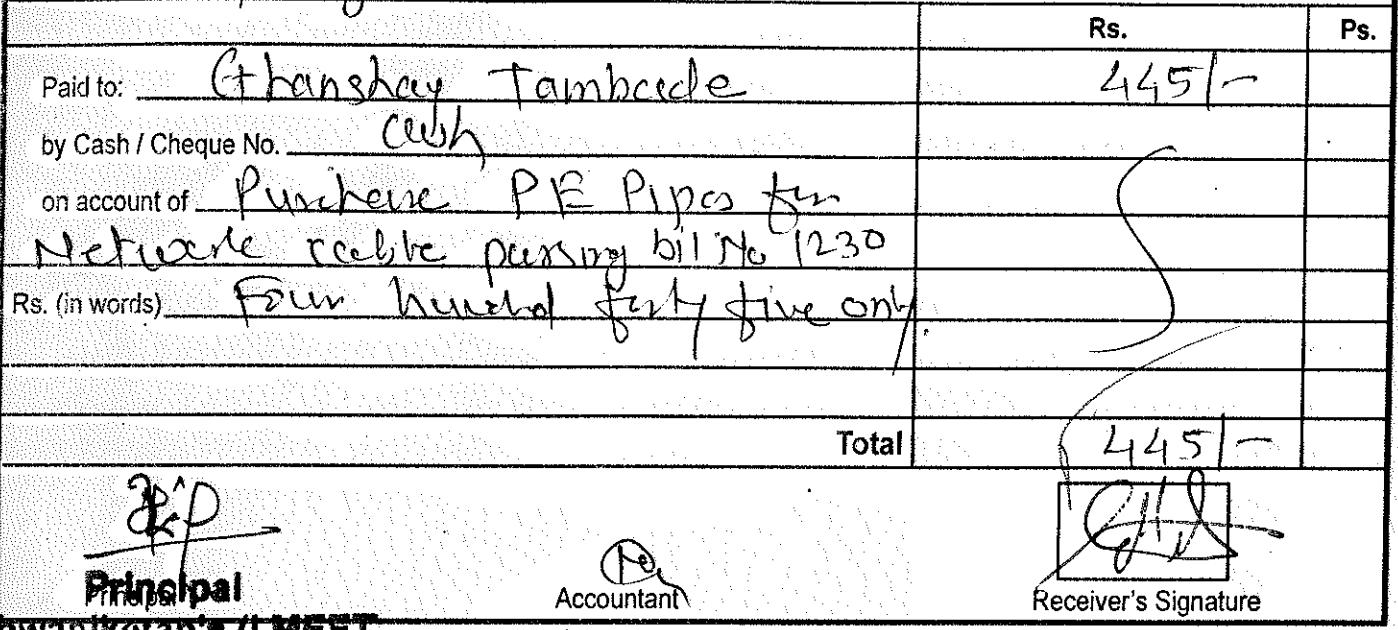 Rs. Ps.
Paid to: Ghanshay Tambade 445/-
by Cash / Cheque No. Cash
on account of Purchase PE Pipes for
Network cable passing bil No 1230
Rs. (in words) Four hundred forty five only
Total 445/-
Principal
Principal
Accountant
Receiver's Signature